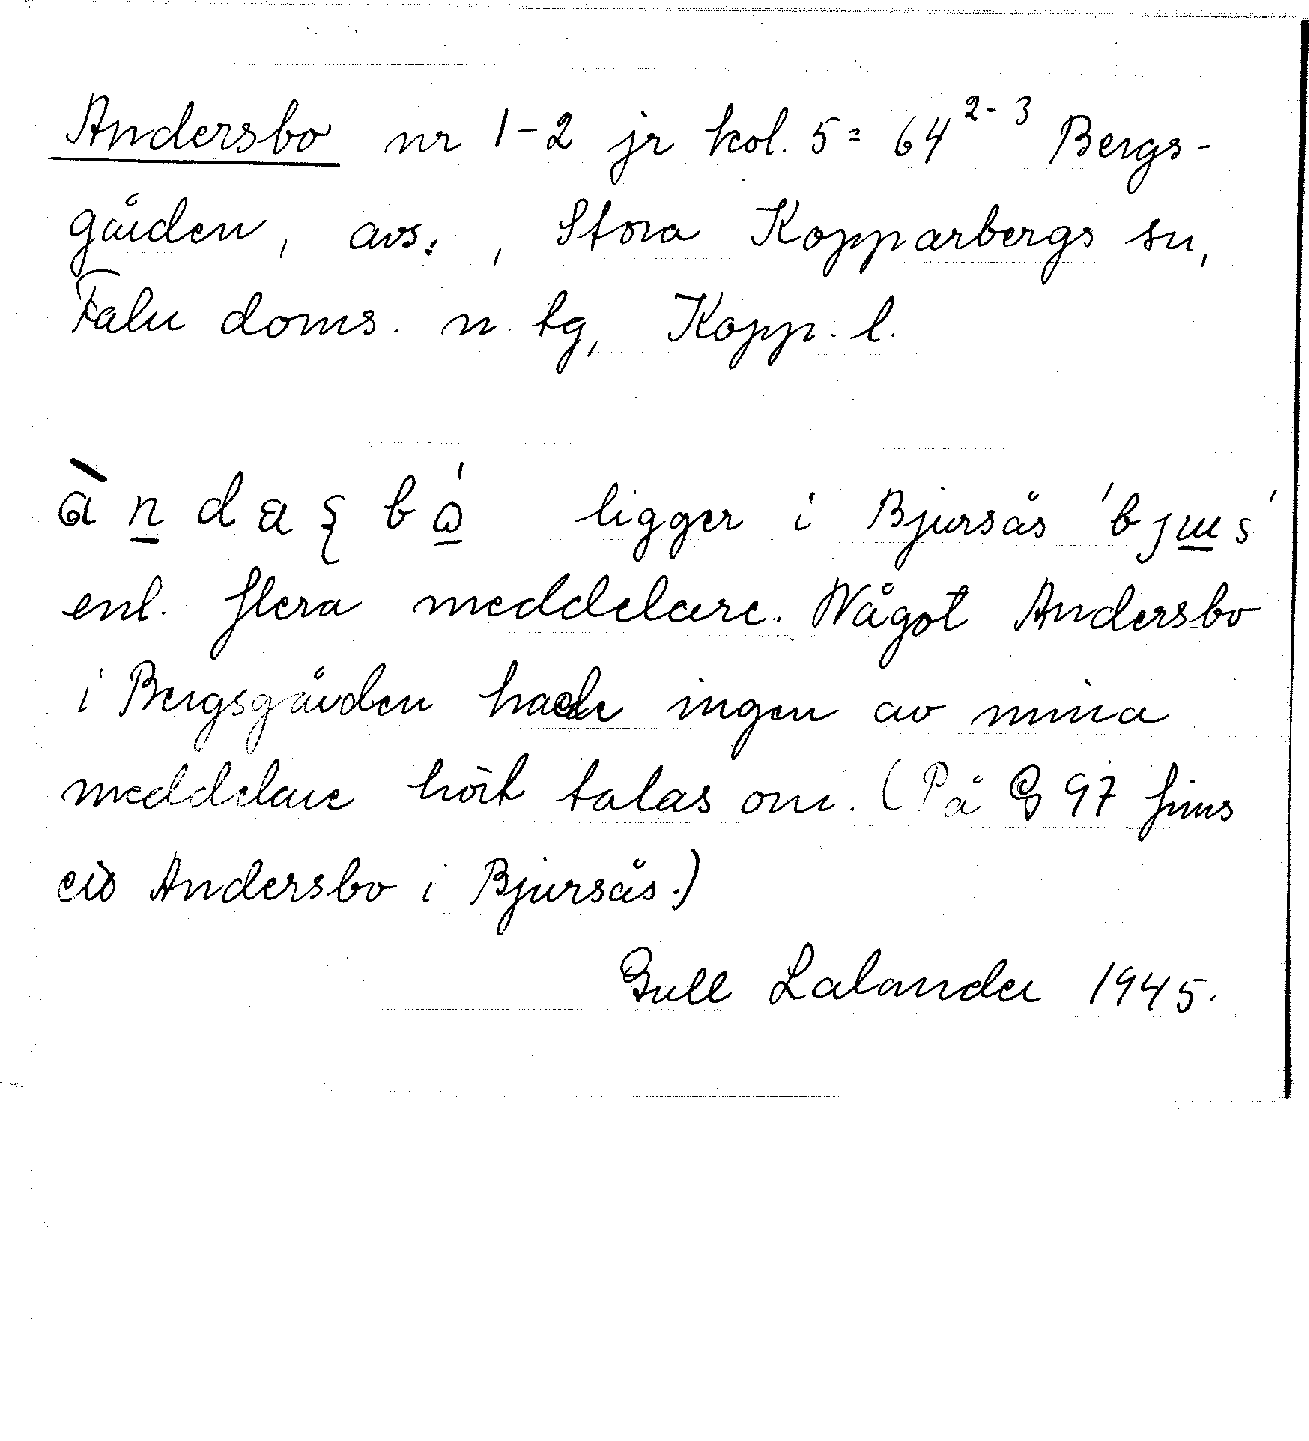 Andersbo nr 1-2 jr kol. 5 = 64²⁻³ Bergs-
gården, avs., Stora Kopparbergs sn,
Falu doms. n. tg, Kopp. l.
ligger i Bjursås
enl. flera meddelare. Något Andersbo
i Bergsgården hade ingen av mina
meddelare hört talas om. (På G 97 finns
Andersbo i Bjursås.)
Gull Lalander 1945.